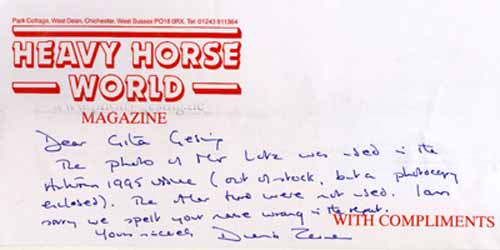 Park Cottage, West Dean, Chichester, West Sussex PO18 0RX. Tel: 01243 811364
HEAVY HORSE
WORLD
MAGAZINE
Dear Gita Gesing
The photo of Mr Lutz was used in the
Autumn 1995 issue (out of stock, but a photocopy
enclosed). The other two were not used. I am
sorry we spelt your name wrong in the report.
WITH COMPLIMENTS
Yours sincerely,